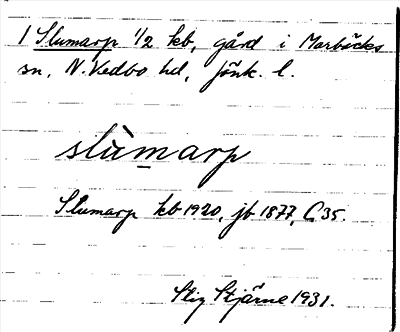 1 Slumarp 1/2 kb, gård i Marbäcks
sn, N. Vedbo hd, Jönk. l.
slùmarp
Slumarp kb 1920, jb 1877, C 35.
Stig Stjärne 1931.